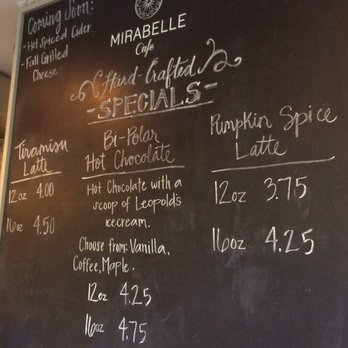 Coming Soon:
- Hot Spiced Cider
- Fall Grilled
Cheese
MIRABELLE
Cafe
Hand-Crafted
-SPECIALS-
Tiramisu
Latte
12oz 4.00
16oz 4.50
Bi-Polar
Hot Chocolate
Hot Chocolate with a
scoop of Leopold's
icecream.
Choose from: Vanilla,
Coffee, Maple.
12oz 4.25
16oz 4.75
Pumpkin Spice
Latte
12oz 3.75
16oz 4.25